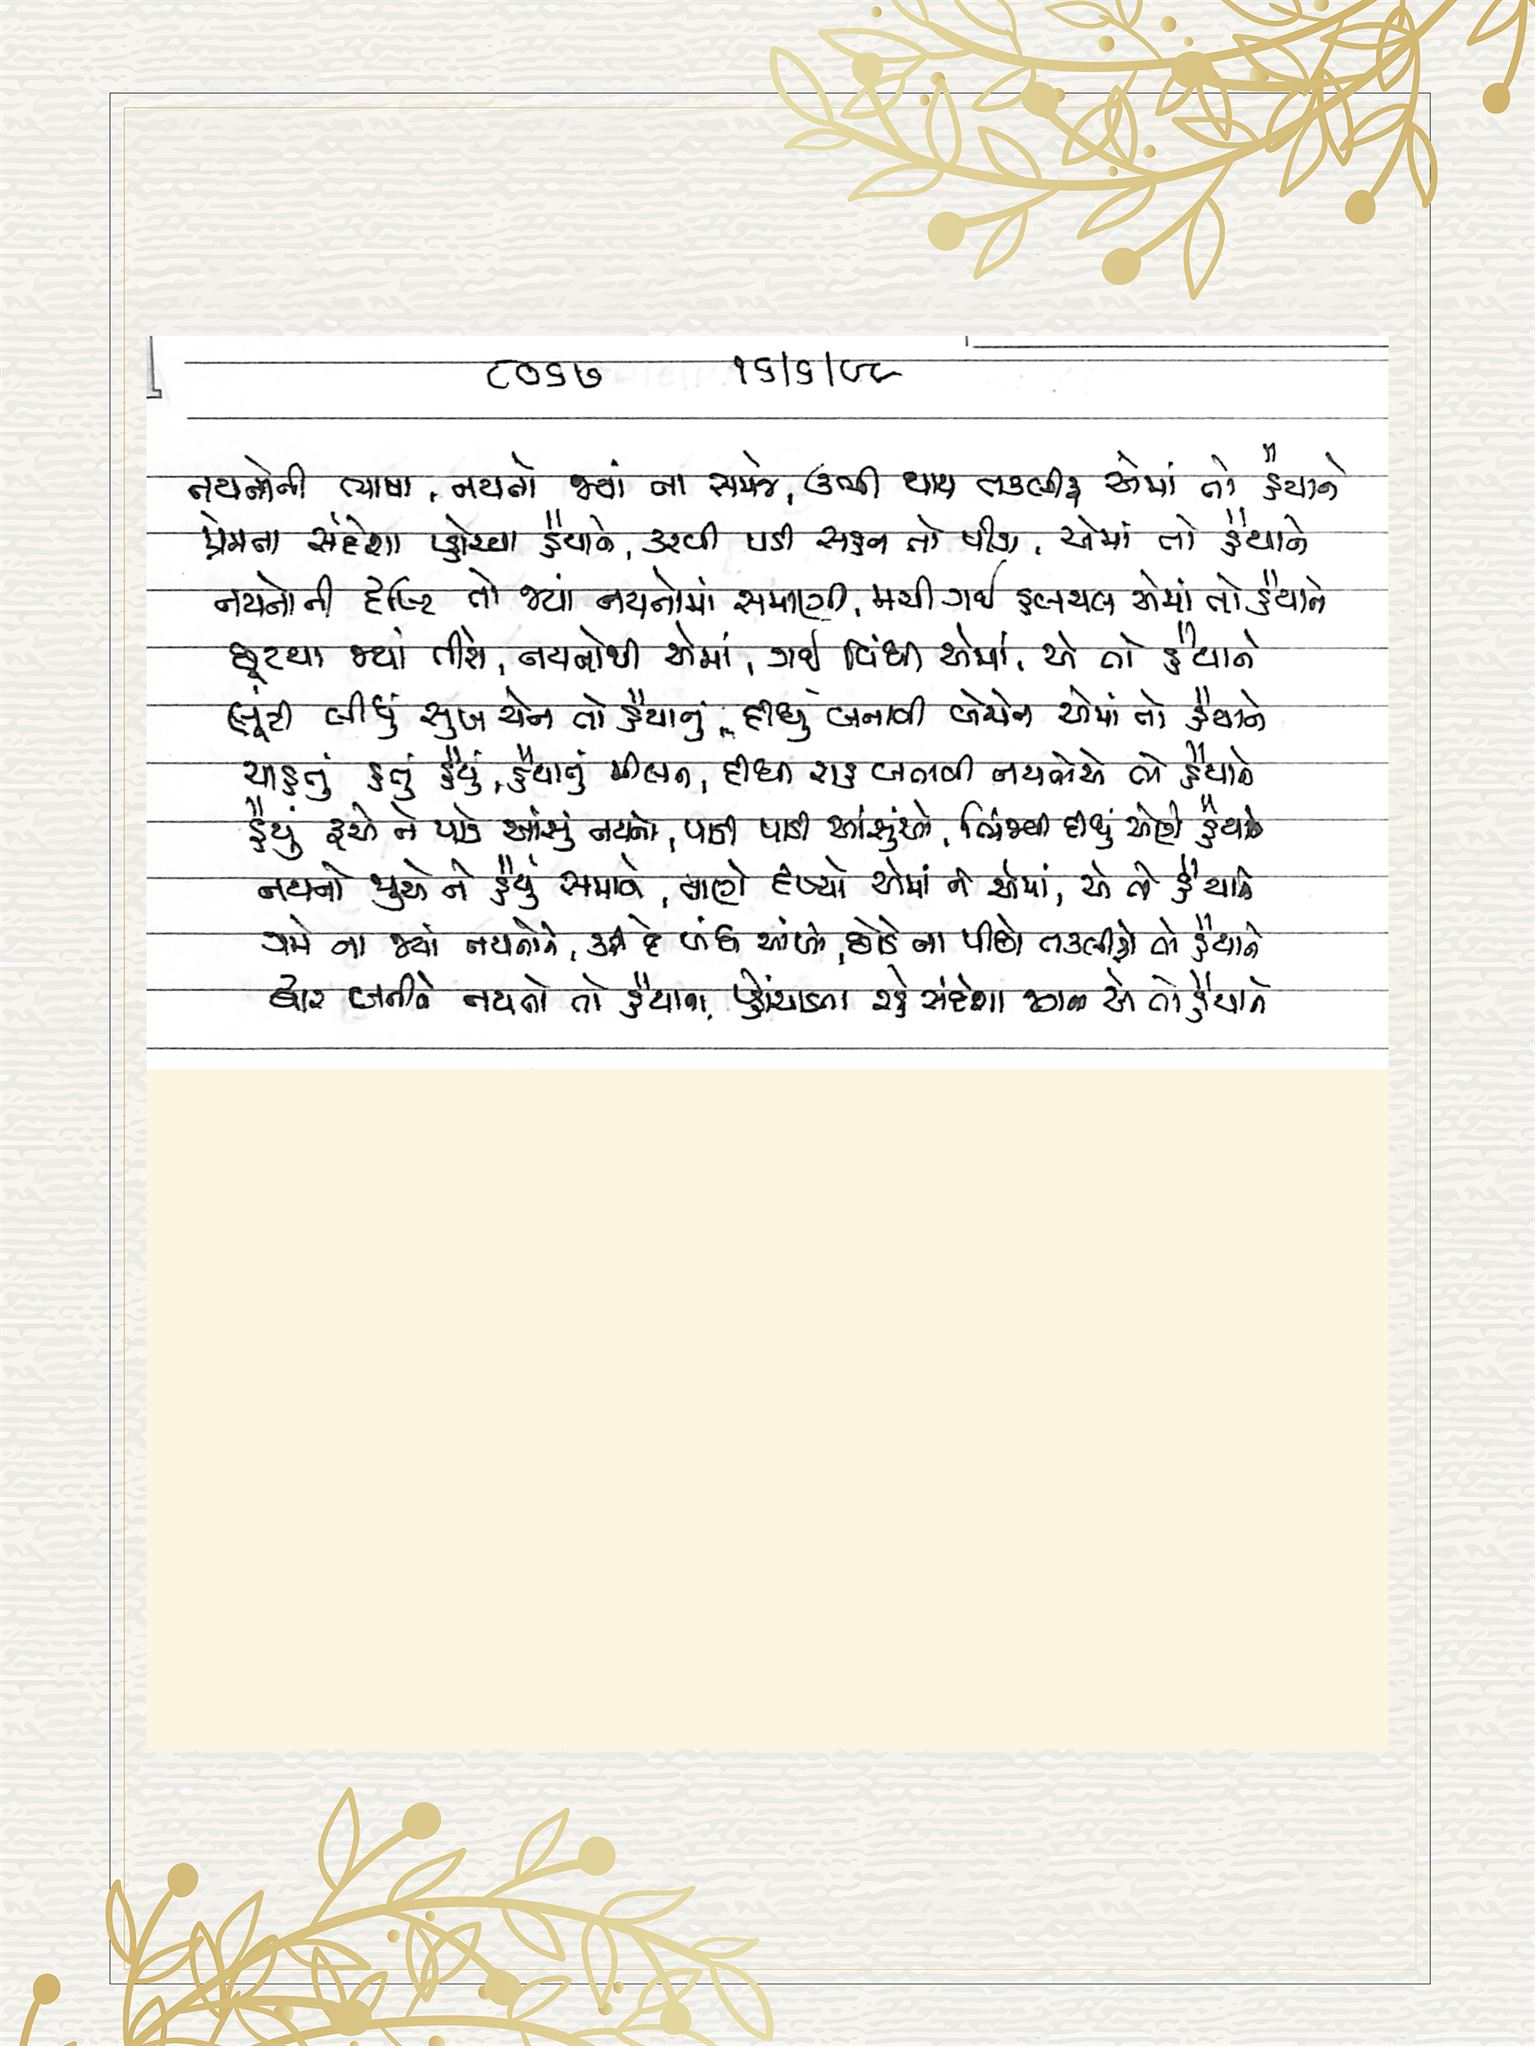 ૮૦૬૭ ૧૬/૬/૯૯
નયનોની ભાષા, નયનો જ્યાં ના સમજે, ઊભી થાય તકલીફ એમાં તો હૈયાને
પ્રેમના સંદેશા પ્હોંચ્યા હૈયાને, કરવી પડી સહન તો પીડા, એમાં તો હૈયાને
નયનોની દૃષ્ટિ તો જ્યાં નયનોમાં સમાણી, મચી ગઈ હલચલ એમાં તો હૈયાને
છૂટયા જ્યાં તીરો, નયનોથી એમાં, ગઈ વિંધી એમાં, એ તો હૈયાને
લૂંટી લીધું સુખ ચેન તો હૈયાનું, દીધું બનાવી બેચેન એમાં તો હૈયાને
ચાહતું હતું હૈયું, હૈયાનું મીલન, દીધા રાહ બતાવી નયનોએ તો હૈયાને
હૈયું રૂએ ને પાડે આંસું નયનો, પાડી પાડી આંસુંઓ, ભિંજવી દીધું એણે હૈયાને
નયનો જુએ ને હૈયું સમાવે, માણે દૃશ્યો એમાં ને એમાં, એ તો હૈયાને
ગમે ના જ્યાં નયનોને, કરી દે બંધ આંખો, છોડે ના પીછો તકલીફો તો હૈયાને
દ્વાર બનીને નયનો તો હૈયાના, પ્હોંચાડતા રહે સંદેશા બધા એ તો હૈયાને